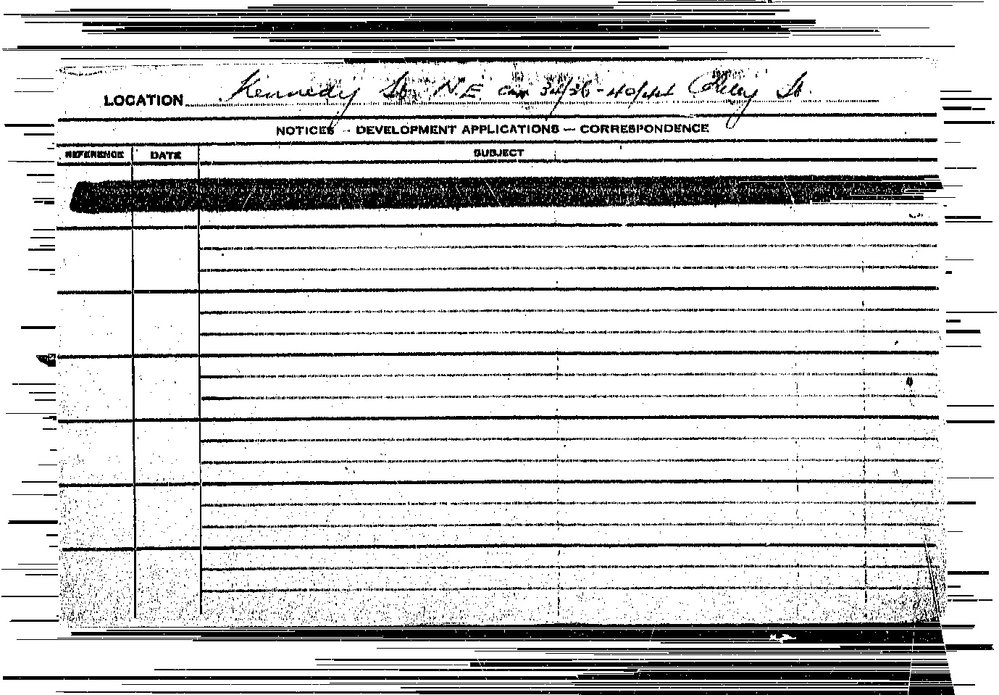 LOCATION Kennedy St. N.E cor 34/36-40/44 St.
NOTICES - DEVELOPMENT APPLICATIONS — CORRESPONDENCE
REFERENCE DATE SUBJECT